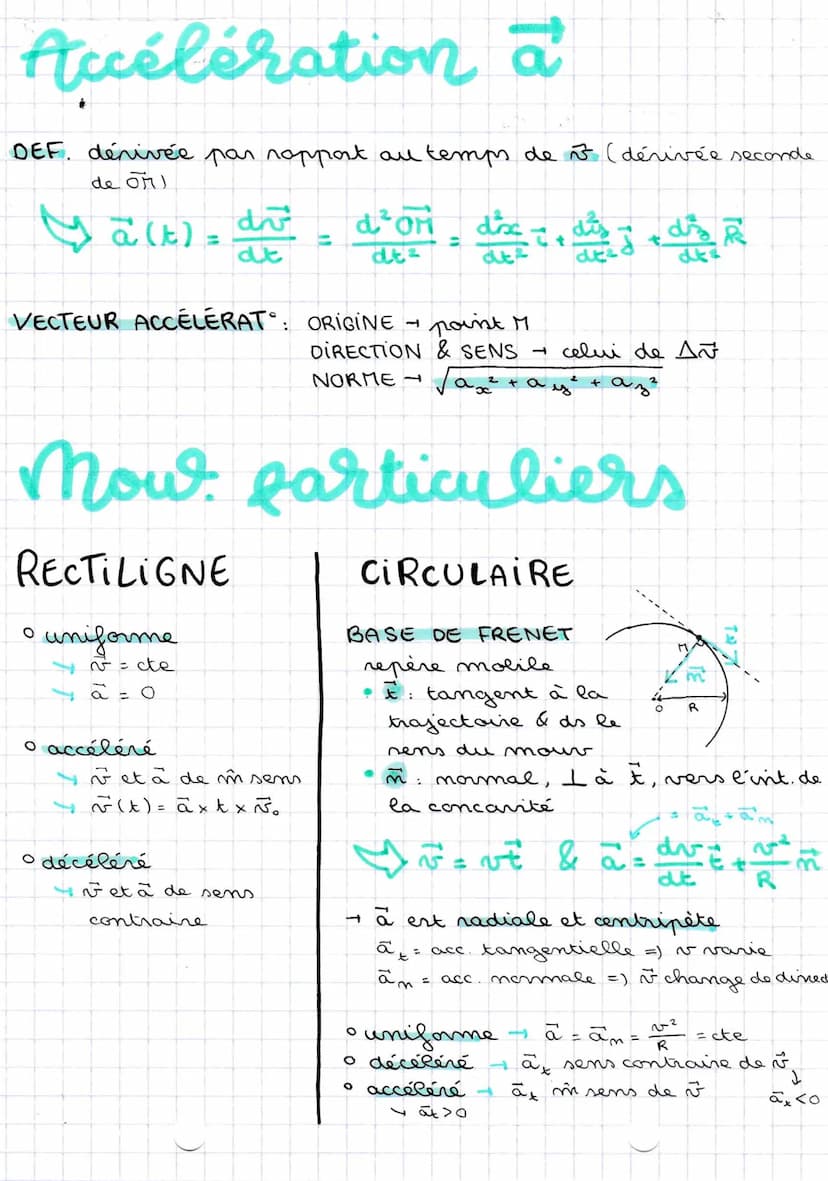 Accélération a⃗
DEF. dérivée par rapport au temps de v⃗ (dérivée seconde
de OM⃗)
a⃗(t) = dv⃗/dt = d²OM⃗/dt² = d²x/dt² i⃗ + d²y/dt² j⃗ + d²z/dt² k⃗
VECTEUR ACCÉLÉRAT°: ORIGINE → point M
DIRECTION & SENS → celui de Δv⃗
NORME → √(ax² + ay² + az²)
Mouv. particuliers
RECTILIGNE
○ uniforme
↳ v⃗ = cte
↳ a⃗ = 0
○ accéléré
↳ v⃗ et a⃗ de m̂ sens
↳ v⃗(t) = a⃗ × t × v⃗₀
○ décéléré
↳ v⃗ et a⃗ de sens
contraire
CIRCULAIRE
BASE DE FRENET
repère mobile
• t⃗ : tangent à la
trajectoire & ds le
sens du mouv
• n⃗ : normal, ⊥ à t⃗, vers l'int. de
la concavité
M
t⃗
n⃗
O
R
= a⃗t + a⃗n
⇒ v⃗ = vt⃗ & a⃗ = dv/dt t⃗ + v²/R n⃗
→ a⃗ est radiale et centripète
a⃗t = acc. tangentielle => v varie
a⃗n = acc. normale => v⃗ change de direct
○ uniforme → a⃗ = a⃗n = v²/R = cte
○ décéléré → a⃗t sens contraire de v⃗
↓ a⃗t < 0
○ accéléré → a⃗t m̂ sens de v⃗
↳ a⃗t > 0